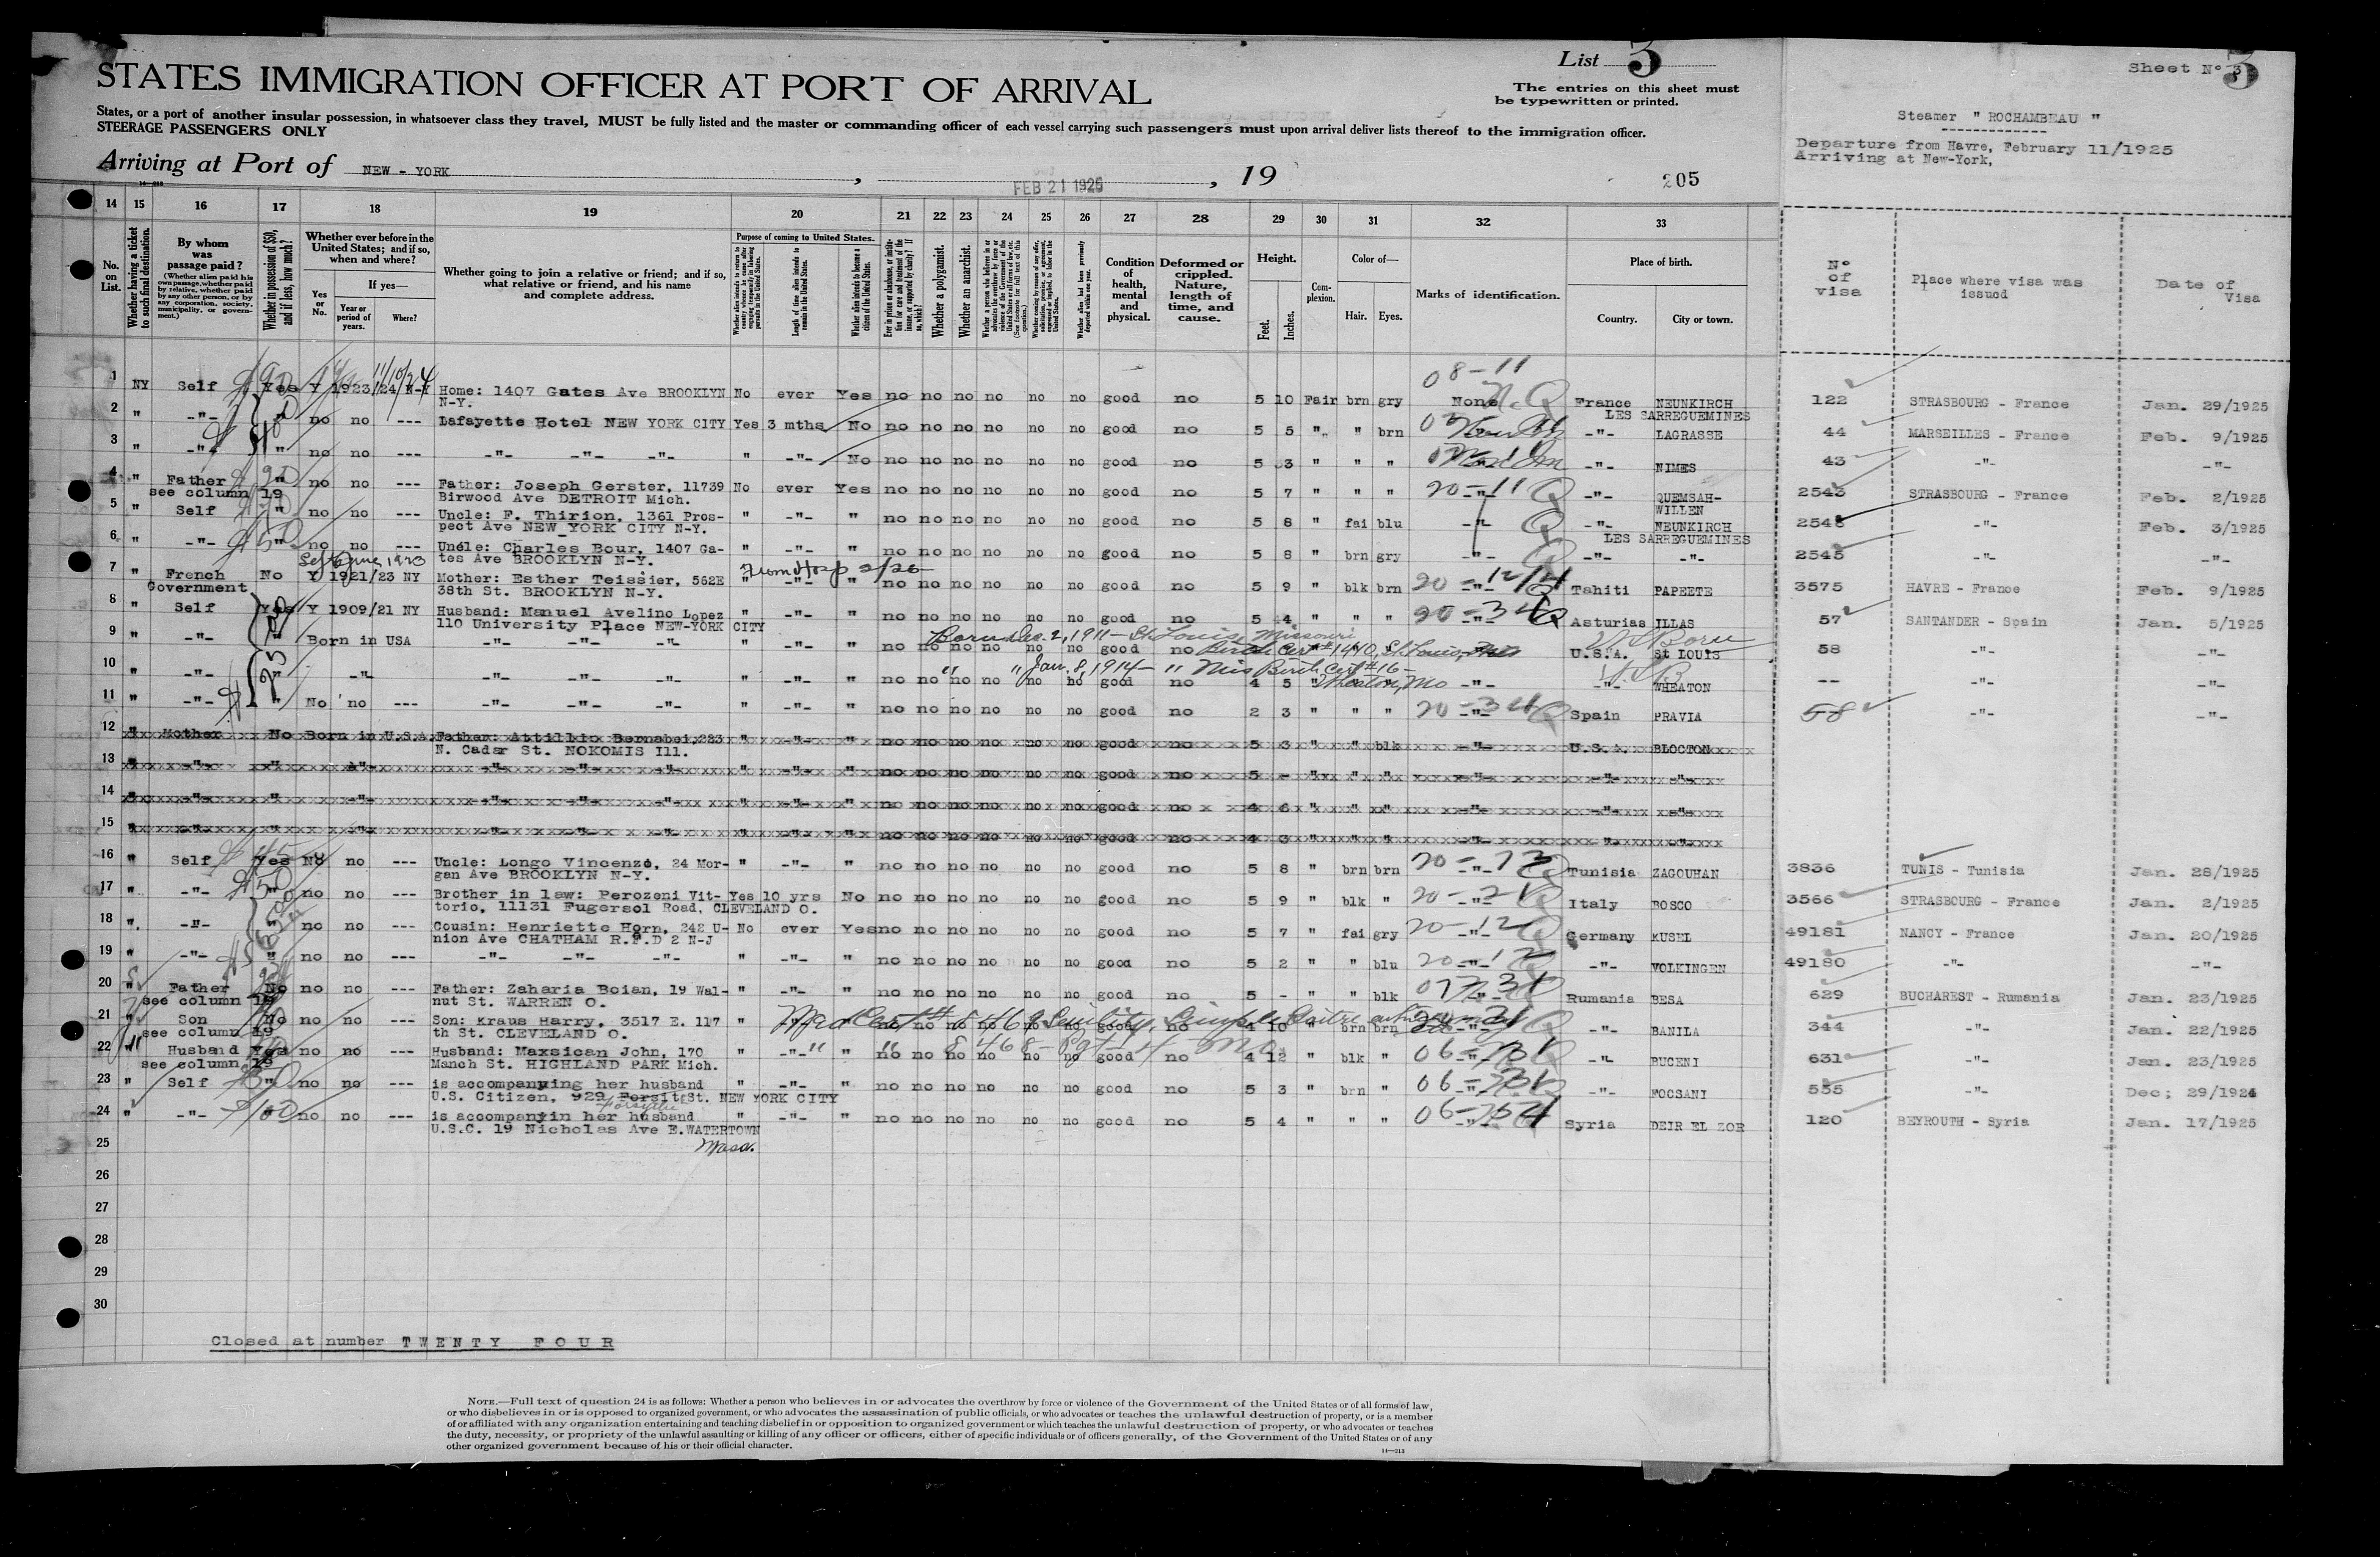 List 3
Sheet N° 3
STATES IMMIGRATION OFFICER AT PORT OF ARRIVAL
The entries on this sheet must
be typewritten or printed.
States, or a port of another insular possession, in whatsoever class they travel, MUST be fully listed and the master or commanding officer of each vessel carrying such passengers must upon arrival deliver lists thereof to the immigration officer.
STEERAGE PASSENGERS ONLY
Steamer " ROCHAMBEAU "
Departure from Havre, February 11/1925
Arriving at New-York,
Arriving at Port of NEW - YORK , FEB 21 1925 , 19
205
14 15 16 17 18 19 20 21 22 23 24 25 26 27 28 29 30 31 32 33
No. on List.
Whether having a ticket to such final destination.
By whom was passage paid?
(Whether alien paid his own passage, whether paid by relative, whether paid by any other person, or by any corporation, society, municipality, or government.)
Whether in possession of $50, and if less, how much?
Whether ever before in the United States; and if so, when and where?
Yes or No.
If yes—
Year or period of years.
Where?
Whether going to join a relative or friend; and if so, what relative or friend, and his name and complete address.
Purpose of coming to United States.
Length of time alien intends to remain in the United States.
Whether alien intends to become a citizen of the United States.
Whether a polygamist.
Whether an anarchist.
Condition of health, mental and physical.
Deformed or crippled. Nature, length of time, and cause.
Height.
Feet.
Inches.
Complexion.
Color of—
Hair.
Eyes.
Marks of identification.
Place of birth.
Country.
City or town.
N° of visa
Place where visa was issued
Date of Visa
08-11
1 NY Self Yes Y 1923/24 N-Y Home: 1407 Gates Ave BROOKLYN No ever Yes no no no no no no good no 5 10 Fair brn gry None France NEUNKIRCH 122 STRASBOURG - France Jan. 29/1925
N-Y. LES SARREGUEMINES
2 " -"- " no no --- Lafayette Hotel NEW YORK CITY Yes 3 mths No no no no no no no good no 5 5 " " brn -"- LAGRASSE 44 MARSEILLES - France Feb. 9/1925
3 " -"- " no no --- -"- -"- -"- " -"- No no no no no no no good no 5 3 " " " -"- NIMES 43 -"- -"-
4 " Father " no no --- Father: Joseph Gerster, 11739 No ever Yes no no no no no no good no 5 7 " " " 20-11 -"- QUEMSAH- 2543 STRASBOURG - France Feb. 2/1925
see column 19 Birwood Ave DETROIT Mich. WILLEN
5 " Self " no no --- Uncle: F. Thirion, 1361 Pros- " -"- " no no no no no no good no 5 8 " fai blu -"- -"- NEUNKIRCH 2548 -"- Feb. 3/1925
pect Ave NEW YORK CITY N-Y. LES SARREGUEMINES
6 " -"- " no no --- Uncle: Charles Bour, 1407 Ga- " -"- " no no no no no no good no 5 8 " brn gry -"- -"- -"- 2545 -"- -"-
tes Ave BROOKLYN N-Y.
7 " French No Y 1921/23 NY Mother: Esther Teissier, 562E " -"- " no no no no no no good no 5 9 " blk brn -"- Tahiti PAPEETE 3575 HAVRE - France Feb. 9/1925
Government 38th St. BROOKLYN N-Y.
8 " Self Yes Y 1909/21 NY Husband: Manuel Avelino Lopez " -"- " no no no no no no good no 5 4 " " " 20-34 Asturias ILLAS 57 SANTANDER - Spain Jan. 5/1925
110 University Place NEW-YORK CITY
Born Dec. 2, 1911 - St. Louis, Missouri
Birth Cert #1440, St. Louis,
9 " -"- " Born in USA -"- -"- -"- " -"- " no no no no no no good no U.S.A. St LOUIS 58 -"- -"-
US Born
" " Jan. 8, 1914 - " Mis Birth Cert #16 -
Wheaton, Mo
10 " -"- " -"- -"- -"- -"- " -"- " no no no no no no good no 4 5 " -"- -"- WHEATON -- -"- -"-
11 " -"- " No no --- -"- -"- -"- " -"- " no no no no no no good no 2 3 " " " 20-34 Spain PRAVIA 58 -"- -"-
12 " Mother No Born in U.S.A. Father: Attillio Bernabei, 223 " -"- " no no no no no no good no 5 3 " " blk -"- U.S.A. BLOCTON
N. Cadar St. NOKOMIS Ill.
13 " -"- " -"- -"- -"- -"- " -"- " no no no no no no good no 5 - " " " -"- -"- -"-
14 " -"- " -"- -"- -"- -"- " -"- " no no no no no no good no 4 6 " " " -"- -"- -"-
15 " -"- " -"- -"- -"- -"- " -"- " no no no no no no good no 4 3 " " " -"- -"- -"-
16 " Self Yes No no --- Uncle: Longo Vincenzo, 24 Mor- " -"- " no no no no no no good no 5 8 " brn brn -"- Tunisia ZAGOUHAN 3836 TUNIS - Tunisia Jan. 28/1925
gan Ave BROOKLYN N-Y.
17 " -"- " no no --- Brother in law: Perozeni Vit- Yes 10 yrs No no no no no no no good no 5 9 " blk " -"- Italy BOSCO 3566 STRASBOURG - France Jan. 2/1925
torio, 11131 Fugersol Road, CLEVELAND O.
18 " -"- " no no --- Cousin: Henriette Horn, 242 U- No ever Yes no no no no no no good no 5 7 " fai gry 20-12 Germany KUSEL 49181 NANCY - France Jan. 20/1925
nion Ave CHATHAM R.F.D 2 N-J
19 " -"- " no no --- -"- -"- -"- " -"- " no no no no no no good no 5 2 " " blu -"- -"- VOLKINGEN 49180 -"- -"-
20 " Father No no no --- Father: Zaharia Boian, 19 Wal- " -"- " no no no no no no good no 5 - " " blk -"- Rumania BESA 629 BUCHAREST - Rumania Jan. 23/1925
see column 19 nut St. WARREN O.
21 " Son No no no --- Son: Kraus Harry, 3517 E. 117 " no no no no no good no 4 10 " brn brn -"- -"- BANILA 344 -"- Jan. 22/1925
see column 19 th St. CLEVELAND O.
22 " Husband Yes no no --- Husband: Maxsican John, 170 " -"- " no no no no no no good no 4 12 " blk " -"- -"- BUCENI 631 -"- Jan. 23/1925
see column 19 Manch St. HIGHLAND PARK Mich.
23 " Self " no no --- is accompanying her husband " -"- " no no no no no no good no 5 3 " brn " -"- -"- FOCSANI 555 -"- Dec; 29/1924
U.S. Citizen, 929 Forsit St. NEW YORK CITY
Forsythe
24 " -"- no no --- is accompanyin her husband " -"- " no no no no no no good no 5 4 " " " -"- Syria DEIR EL ZOR 120 BEYROUTH - Syria Jan. 17/1925
U.S.C. 19 Nicholas Ave E.WATERTOWN
Mass.
25
26
27
28
29
30
Closed at number TWENTY FOUR
NOTE.—Full text of question 24 is as follows: Whether a person who believes in or advocates the overthrow by force or violence of the Government of the United States or of all forms of law,
or who disbelieves in or is opposed to organized government, or who advocates the assassination of public officials, or who advocates or teaches the unlawful destruction of property, or is a member
of or affiliated with any organization entertaining and teaching disbelief in or opposition to organized government or which teaches the unlawful destruction of property, or who advocates or teaches
the duty, necessity, or propriety of the unlawful assaulting or killing of any officer or officers, either of specific individuals or of officers generally, of the Government of the United States or of any
other organized government because of his or their official character.
14—213